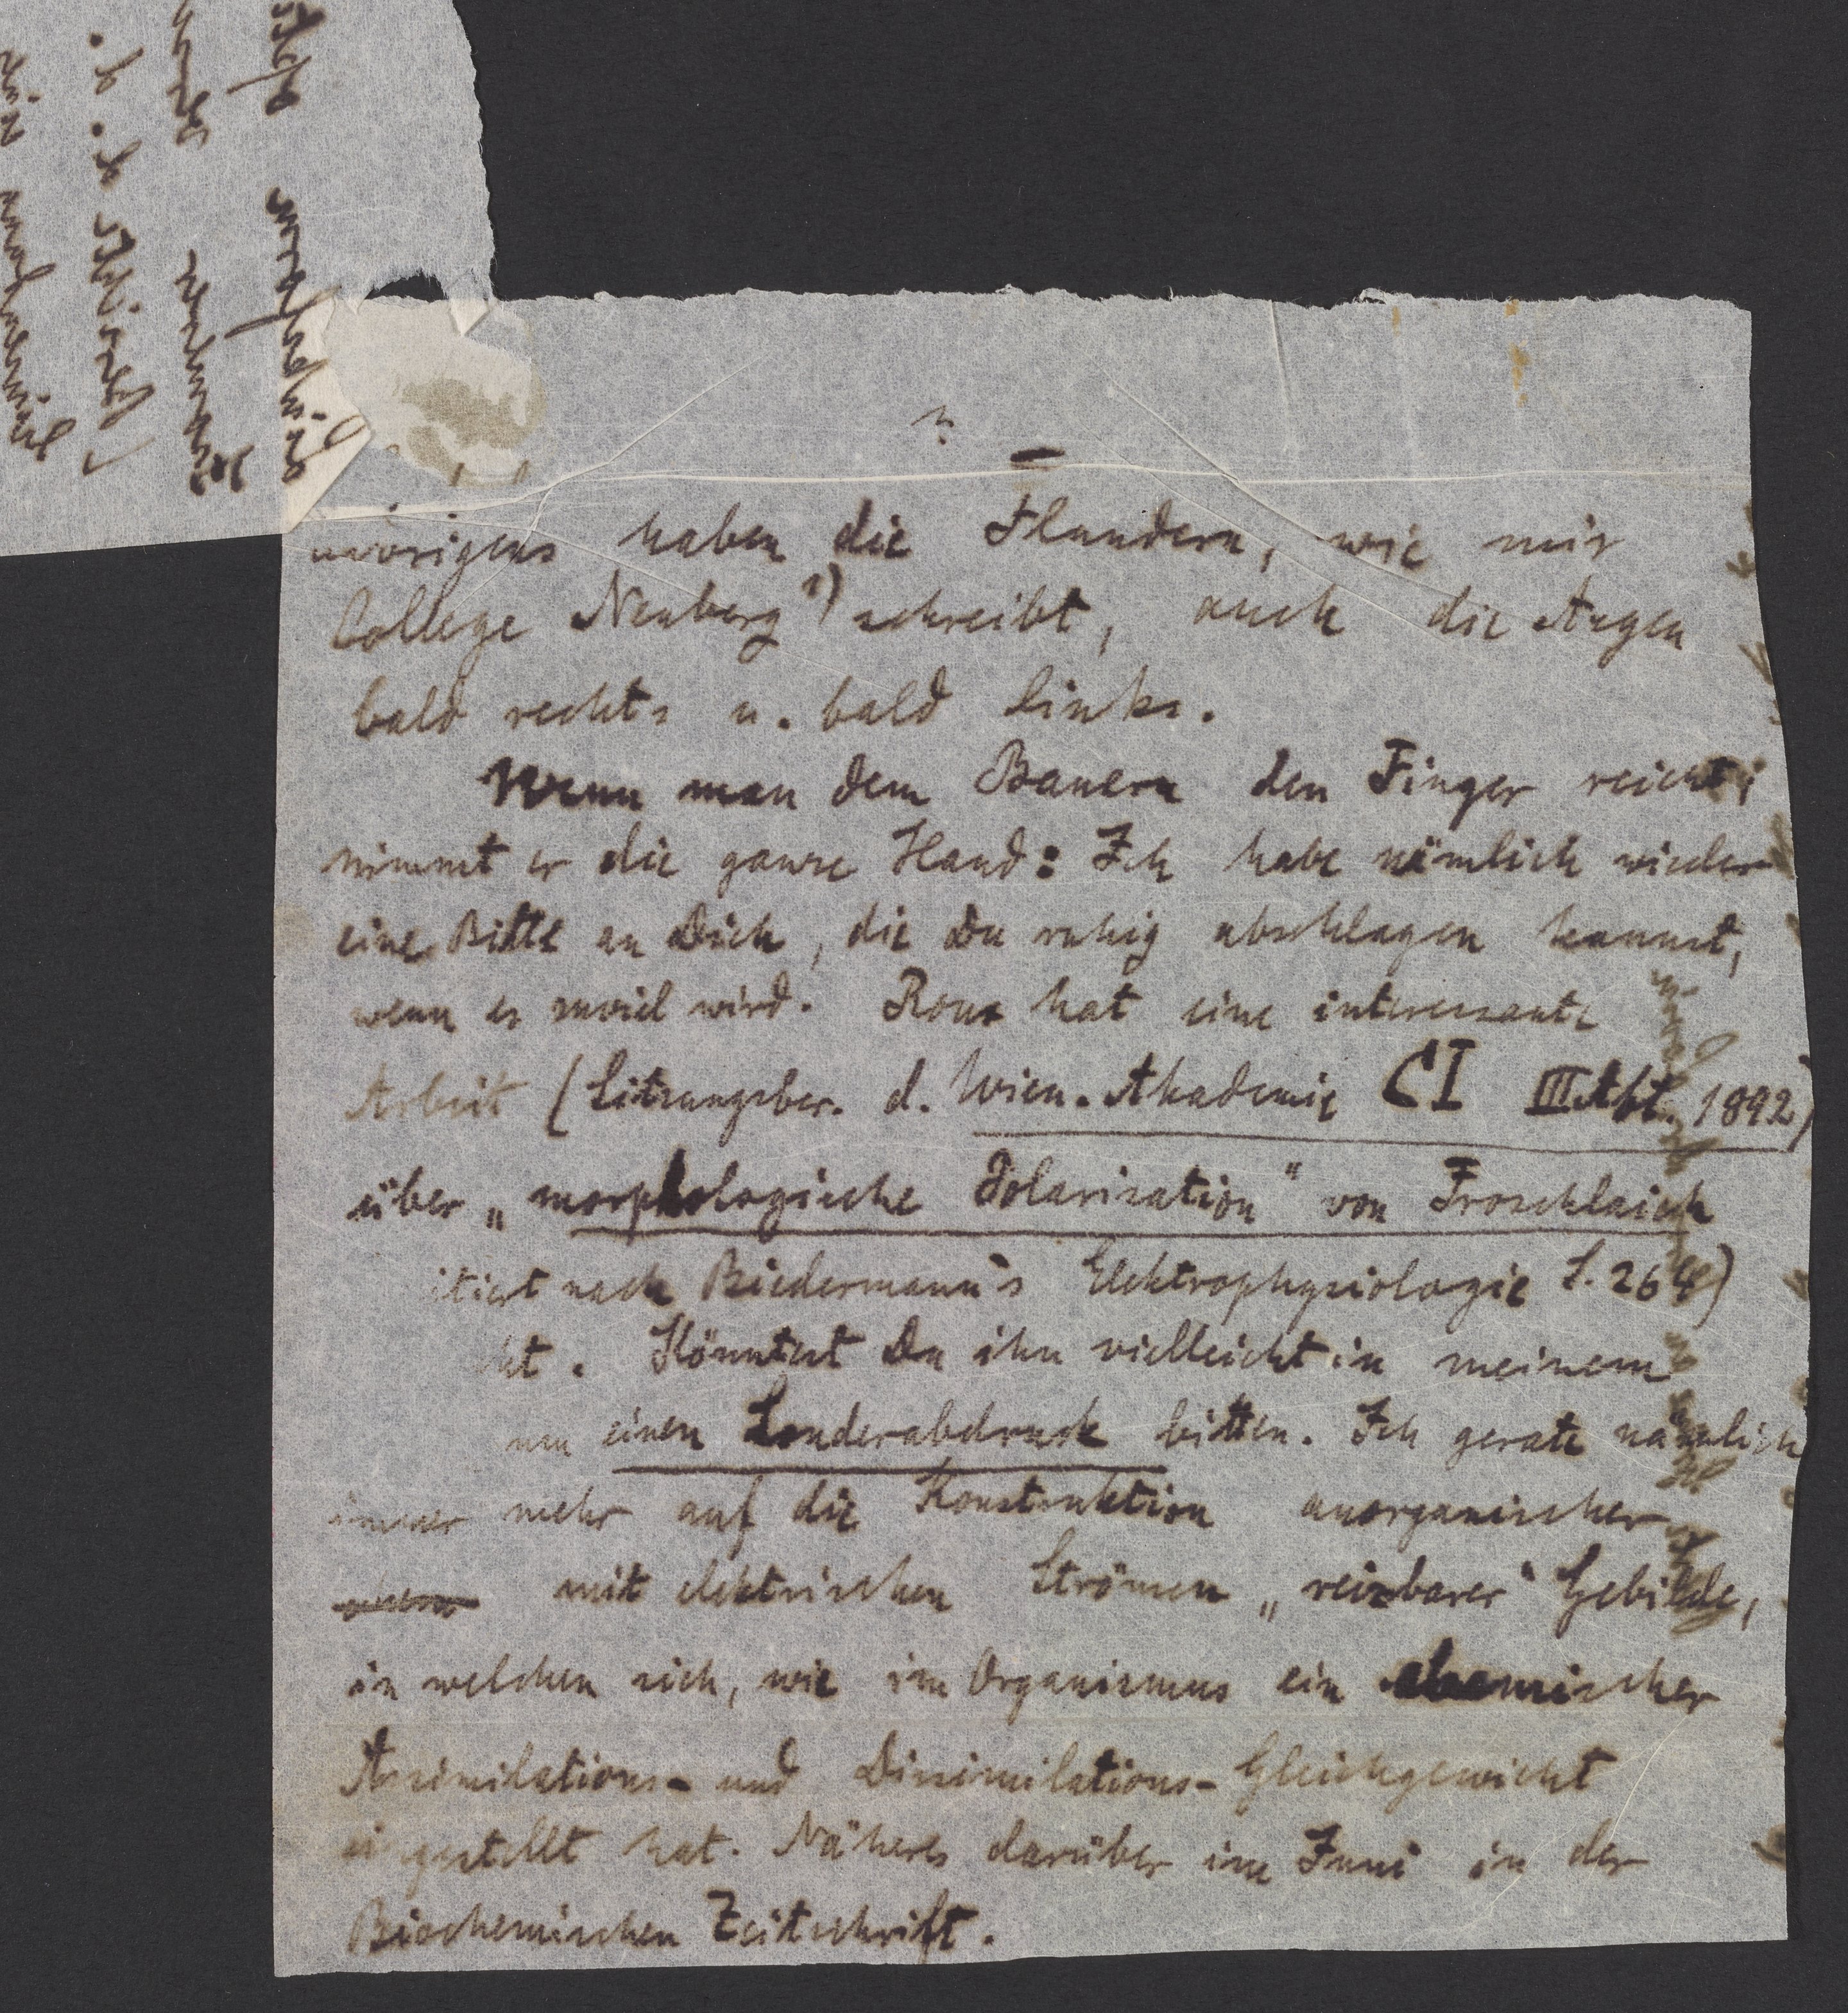 übrigens haben die Flundern, wie mir
College Neuberg 1) schreibt, auch die Augen
bald rechts u. bald links.
Wenn man dem Bauern den Finger reicht,
nimmt er die ganze Hand: Ich habe nämlich wieder
eine Bitte an Dich, die Du ruhig abschlagen kannst,
wenn es zuviel wird. Roux hat eine interessante
Arbeit (Sitzungsber. d. Wien. Akademie CI III Abt. 1892)
über „morphologische Polarisation" von Froschlaich
itiert nach Biedermann's Elektrophysiologie S. 264)
ht. Könntest Du ihn vielleicht in meinem
um einen Sonderabdruck bitten. Ich gerate nämlich
immer mehr auf die Konstruktion anorganischer
mit elektrischen Strömen „reizbarer" Gebilde,
in welchen sich, wie im Organismus ein chemischer
Assimilations- und Dissimilations-Gleichgewicht
eingestellt hat. Näheres darüber im Juni in der
Biochemischen Zeitschrift.